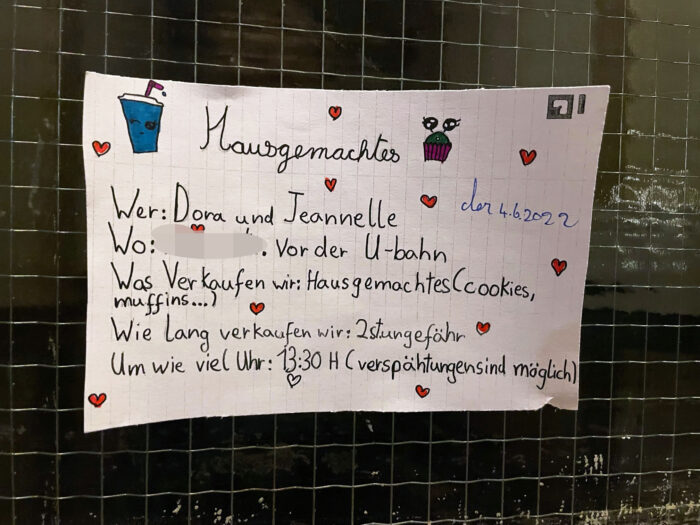 Hausgemachtes
der 4.6.2022
Wer: Dora und Jeannelle
Wo: . Vor der U-bahn
Was Verkaufen wir: Hausgemachtes (cookies,
muffins...)
Wie lang verkaufen wir: 2stungefähr
Um wie viel Uhr: 13:30 H (verspähtungensind möglich)